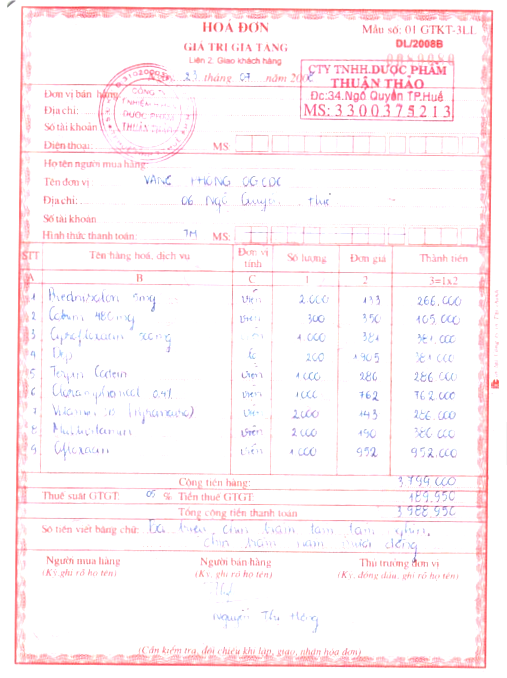 HOÁ ĐƠN
GIÁ TRỊ GIA TĂNG
Liên 2. Giao khách hàng
Mẫu số: 01 GTKT-3LL
DL/2008B
23 tháng 07 năm 200
CTY TNHH.DƯỢC PHẨM
THUẬN THẢO
Đc:34.Ngô Quyền TP.Huế
MS: 3300375213
Đơn vị bán hàng
Địa chỉ:
Số tài khoản
Điện thoại: MS
CÔNG TY
DƯỢC PHẨM
THUẬN THẢO
Họ tên người mua hàng
Tên đơn vị VĂNG PHÒNG OGCDC
Địa chỉ: 06 Ngô Quyền Huế
Số tài khoản
Hình thức thanh toán: TM MS:
STT Tên hàng hoá, dịch vụ Đơn vị tính Số lượng Đơn giá Thành tiền
A B C 1 2 3=1x2
1 Prednisolon 5mg viên 2.000 133 266.000
2 480mg viên 300 350 105.000
3 viên 1.000 381 381.000
4 200 1905 381.000
5 Terpin Codein viên 1000 286 286.000
6 0.4% viên 1000 762 762.000
7 Vitamin viên 2000 143 286.000
8 Multivitamin viên 2000 190 380.000
9 viên 1.000 952 952.000
Cộng tiền hàng: 3.799.000
Thuế suất GTGT: 05 % Tiền thuế GTGT: 189.950
Tổng cộng tiền thanh toán 3.988.950
Số tiền viết bằng chữ: Ba triệu, chín trăm tám tám nghìn,
chín trăm năm mươi đồng
Người mua hàng Người bán hàng Thủ trưởng đơn vị
(Ký, ghi rõ họ tên) (Ký, ghi rõ họ tên) (Ký, đóng dấu, ghi rõ họ tên)
Nguyễn Thu Hồng
(Cần kiểm tra, đối chiếu khi lập, giao, nhận hóa đơn)